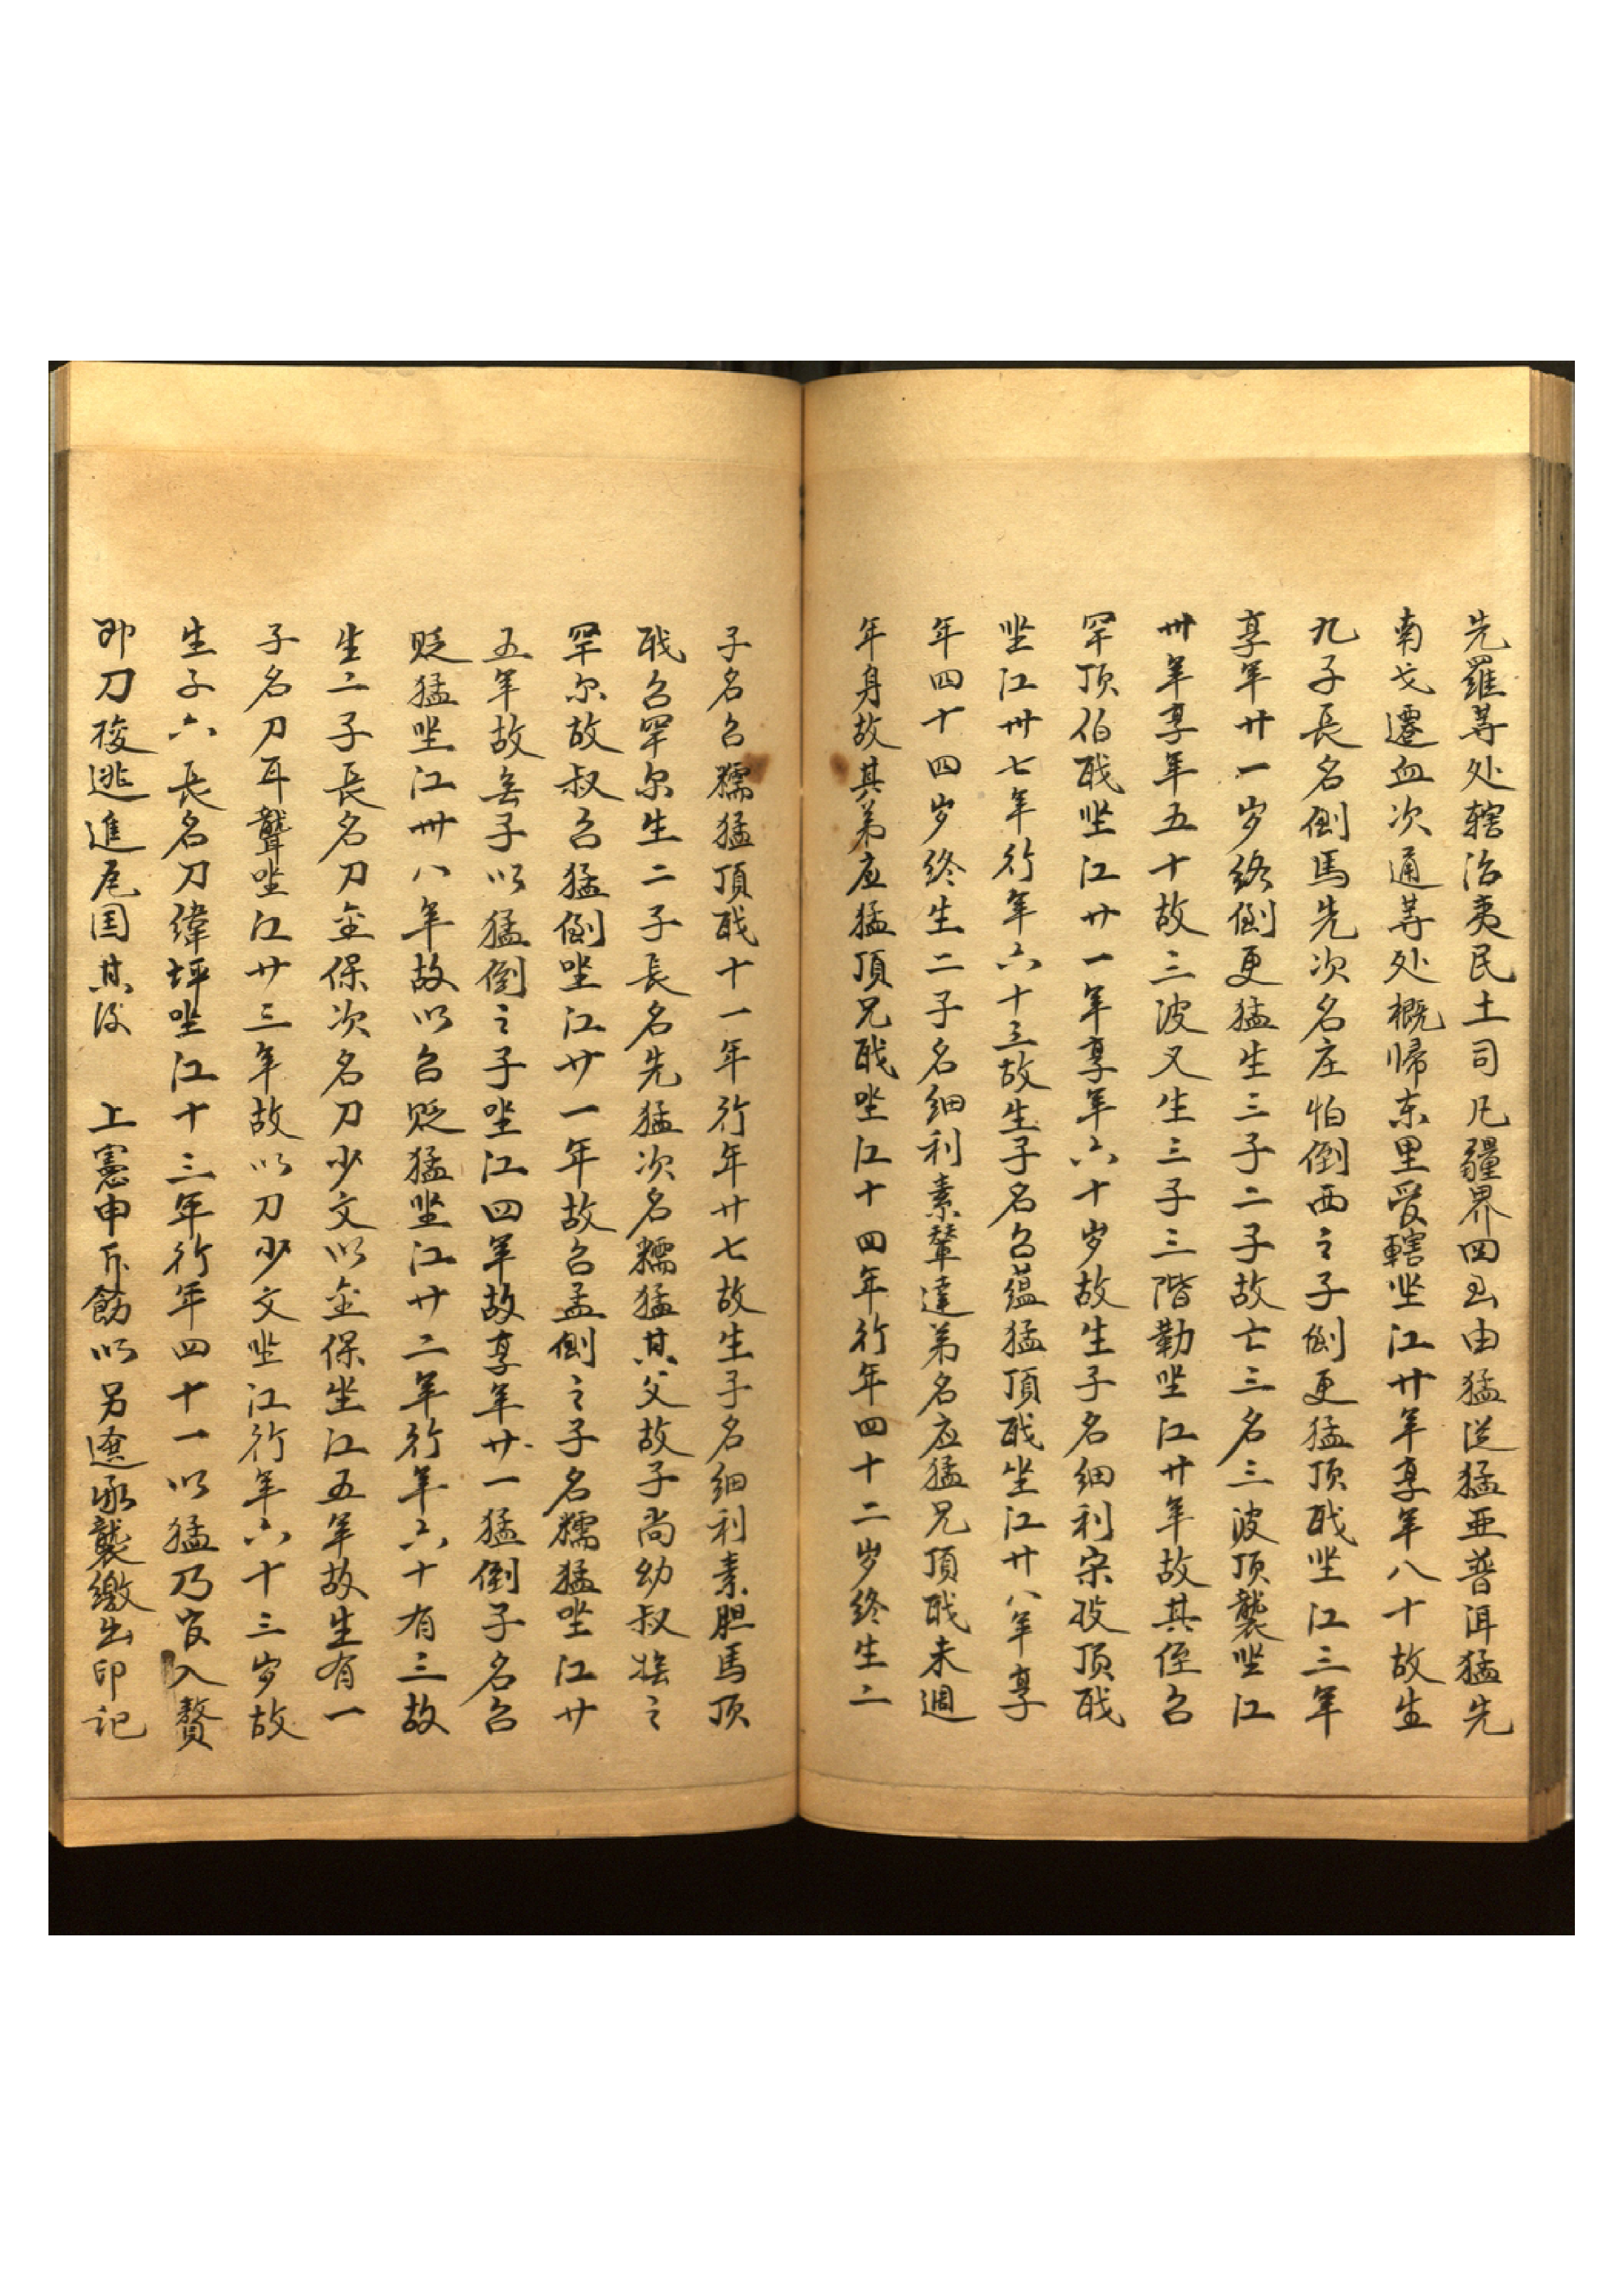 先羅等处轄治夷民土司凡疆界四至由猛送猛亜普洱猛先
南戈遷血次通等处概帰东里受轄坐江廿年享年八十故生
九子長名倒馬先次名庄怕倒西之子倒更猛顶戝坐江三年
享年廿一岁终倒更猛生三子二子故亡三名三波顶襲坐江
卅年享年五十故三波又生三子三階勒坐江廿年故其侄召
罕顶伯戝坐江廿一年享年六十岁故生子名细利宋投顶戝
坐江卅七年行年六十三故生子名召蕴猛頂戝坐江廿八年享
年四十四岁终生二子名细利素輦達弟名应猛兄頂戝未週
年身故其弟应猛頂兄戝坐江十四年行年四十二岁终生二
子名召糯猛頂戝十一年行年廿七故生子名细利素胆馬顶
戝召罕尔生二子長名先猛次名糯猛其父故子尚幼叔之
罕尔故叔召猛倒坐江廿一年故召孟倒之子名糯猛坐江廿
五年故無子以猛倒之子坐江四年故享年廿一猛倒子名召
贬猛坐江卅八年故以召贬猛坐江廿二年行年六十有三故
生二子長名刀金保次名刀少文以金保坐江五年故生有一
子名刀耳聾坐江廿三年故以刀少文坐江行年六十三岁故
生子六長名刀緯坪坐江十三年行年四十一以猛乃官入贅
即刀梭逃進尾国其後　上憲申斥飭以另遴承襲缴出印记